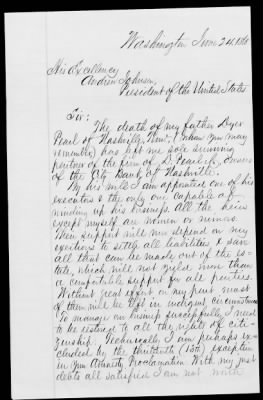 Washington June 24, 1865
His Excellency
Andrew Johnson,
President of the United States
Sir:
The death of my father Dyer
Pearl of Nashville, Tenn. (whom you may
remember) has left me sole surviving
partner of the firm of D. Pearl & Co, owners
of the City Bank of Nashville.
By his will I am appointed one of his
executors & the only one capable of
winding up his business all the heirs
except myself are women or minors.
Their support will now depend on my
exertions to settle all liabilities & save
all that can be made out of the es-
tate, which will not yield more than
a comfortable support for all parties.
Without great effort on my part most
of them will be left in indigent circumstances
To manage our business successfully I need
to be restored to all the rights of citi-
zenship. Technically I am perhaps ex-
cluded by the thirteenth (13th) exception
in your Amnesty Proclamation With my just
debts all satisfied I am not worth